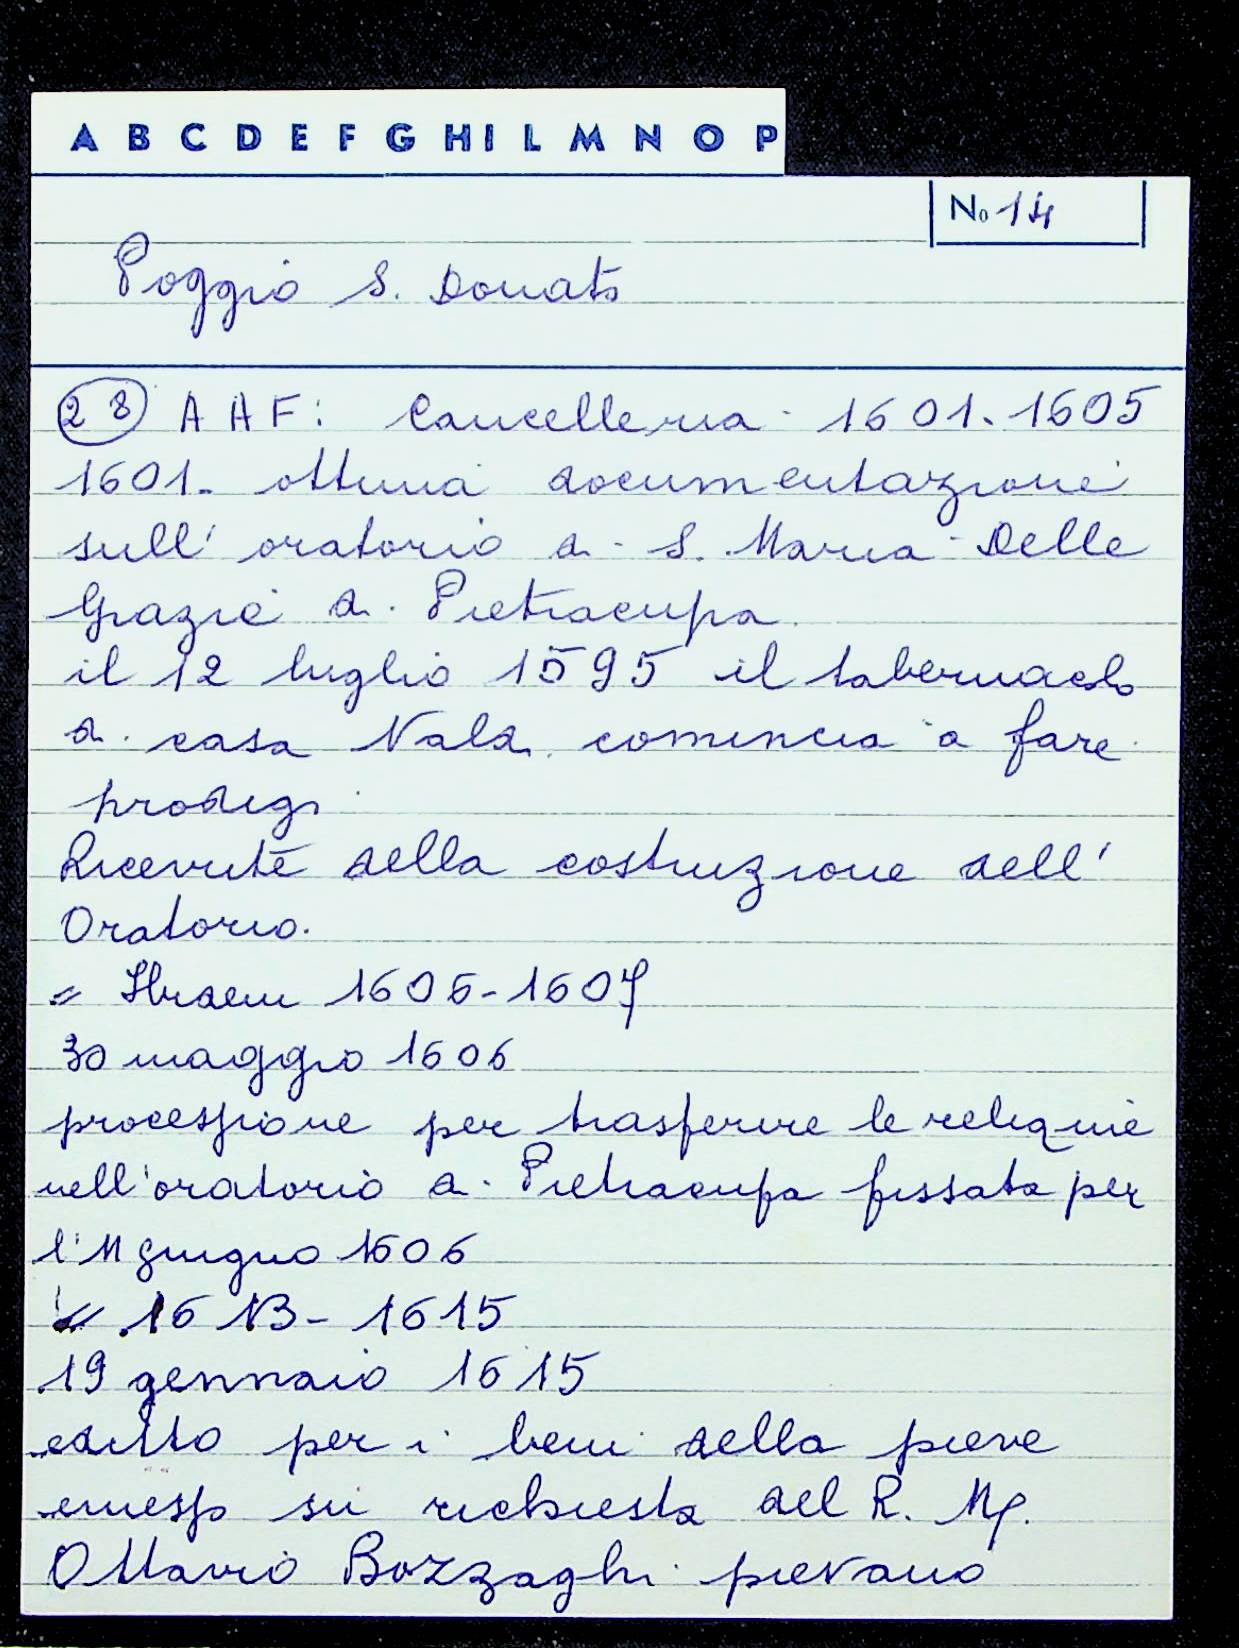 A B C D E F G H I L M N O P
No 14
Poggio S. Donato
28 A A F: Cancelleria 1601. 1605
1601. ottima documentazione
sull'oratorio di S. Maria delle
Grazie di Pietracupa.
il 12 luglio 1595 il tabernacolo
di casa Naldi comincia a fare
prodigi
Ricevute della costruzione dell'
Oratorio.
= Ibidem 1606-1607
30 maggio 1606
processione per trasferire le reliquie
nell'oratorio di Pietracupa fissata per
l'11 giugno 1606
= 1613-1615
19 gennaio 1615
editto per i beni della pieve
emesso su richiesta del R. Mg.
Ottavio Bozzaghi pievano